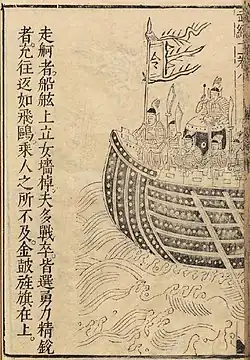 走舸者船舷上立女墻棹夫多戰卒皆選勇力精銳
者充往返如飛鷗乘人之所不及金鼓旌旗在上
令